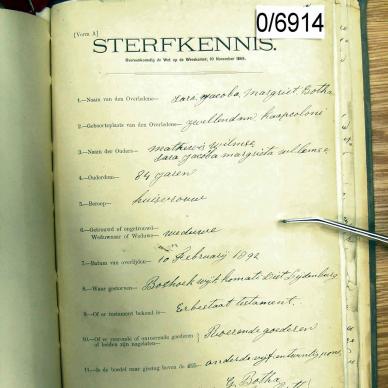 0/6914
[Vorm A]
STERFKENNIS.
Overeenkomstig de Wet op de Weeskamer, 10 November 1869.
1.—Naam van den Overledene— Sara Jacoba Margriet Botha
2.—Geboorteplaats van den Overledene— Zwellendam Kaapcolonie
3.—Naam der Ouders— Mathewis Wilmse
Sara Jacoba Margrieta Willemse
4.—Ouderdom— 84 Jaren
5.—Beroep— huisvrouw
6.—Getrouwd of ongetrouwd— weduwe
Weduwnaar of Weduwe—
7.—Datum van overlijden— 10 February 1892
8.—Waar gestorven— Boshoek wijk Komati Dist Lydenburg
9.—Of er testament bekend is— Er bestaat testament.
10.—Of er roerende of onroerende goederen Roerende goederen
of beiden zijn nagelaten—
11.—Is de boedel naar gissing boven de
Botha